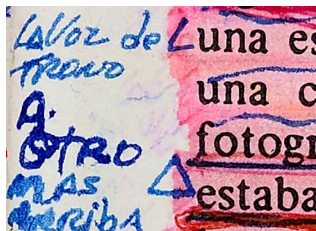 LA VOZ de
TRONO
A.
OTRO
MAS
ARRIBA
una es
una c
fotogr
estaba